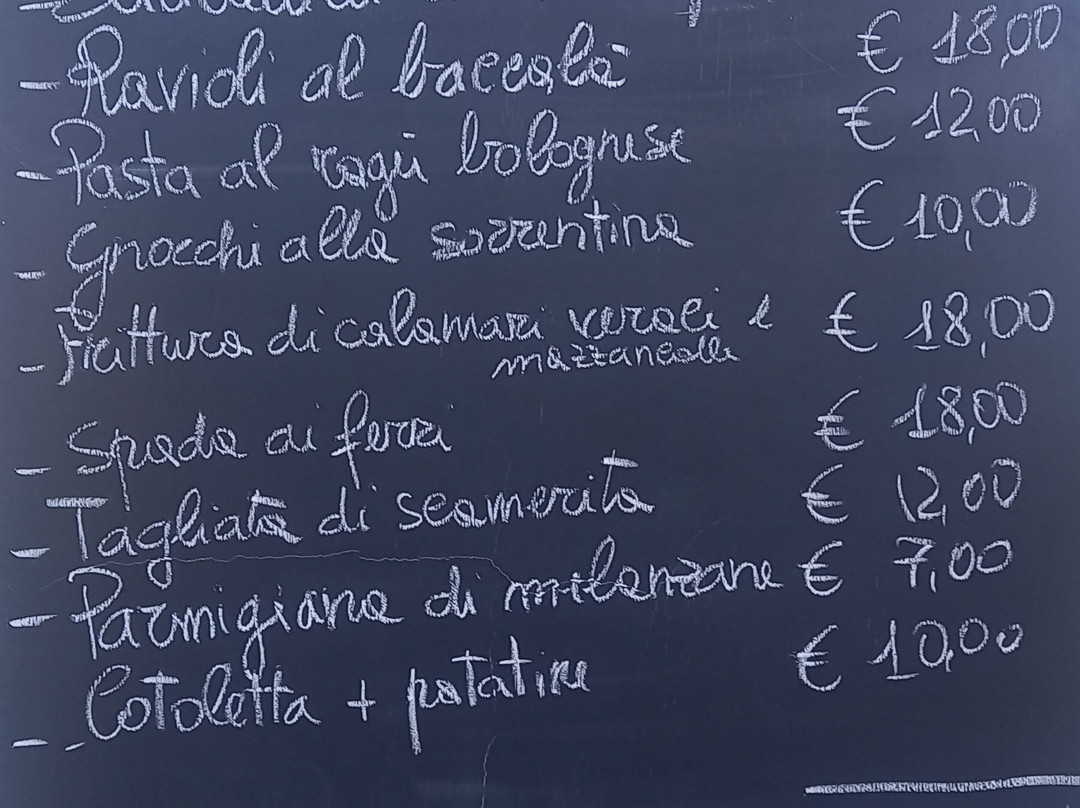 - Ravioli al baccalà € 18,00
- Pasta al ragù bolognese € 12,00
- Gnocchi alla sorrentina € 10,00
- Frittura di calamari veraci e € 18,00
mazzancolle
- Spada ai ferri € 18,00
- Tagliata di scamerita € 12,00
- Parmigiana di melanzane € 7,00
- Cotoletta + patatine € 10,00